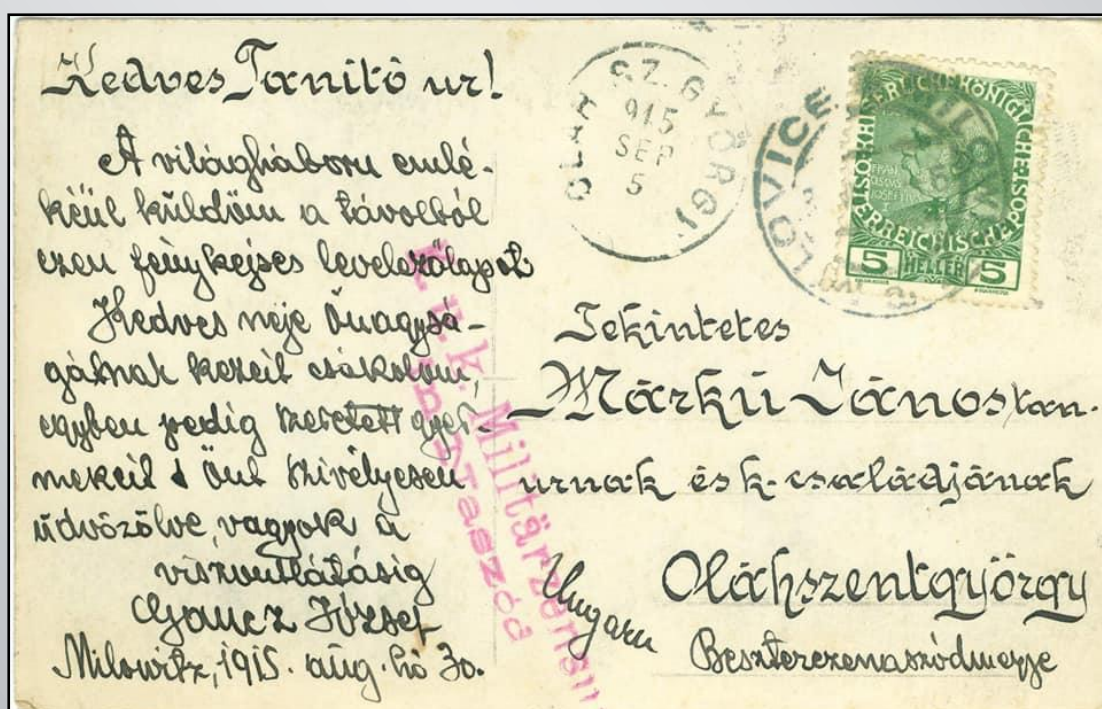 Kedves Tanitó ur!
A világháboru emlé-
kéül küldöm a távolból
ezen fénykejses levelezőlapot
Kedves neje Őnagysá-
gátnak kezeit csókolom,
egyben pedig szeretett gyer-
mekeit s Önt szivélyesen
üdvözölve, vagyok a
viszontlátásig
József
Milowitz, 1915. aug. hó 30.
OLAH SZ. GYÖRGY
915
SEP
5
MILOVICE
KAISERLICHE KÖNIGLICHE ÖSTERREICHISCHE POST
5 HELLER 5
Tekintetes
Márkü János tan.
urnak és k. családjának
Oláhszentgyörgy
Beszterczenaszódmegye
Ungarn
K. u. k. Militärzensur
Naszód